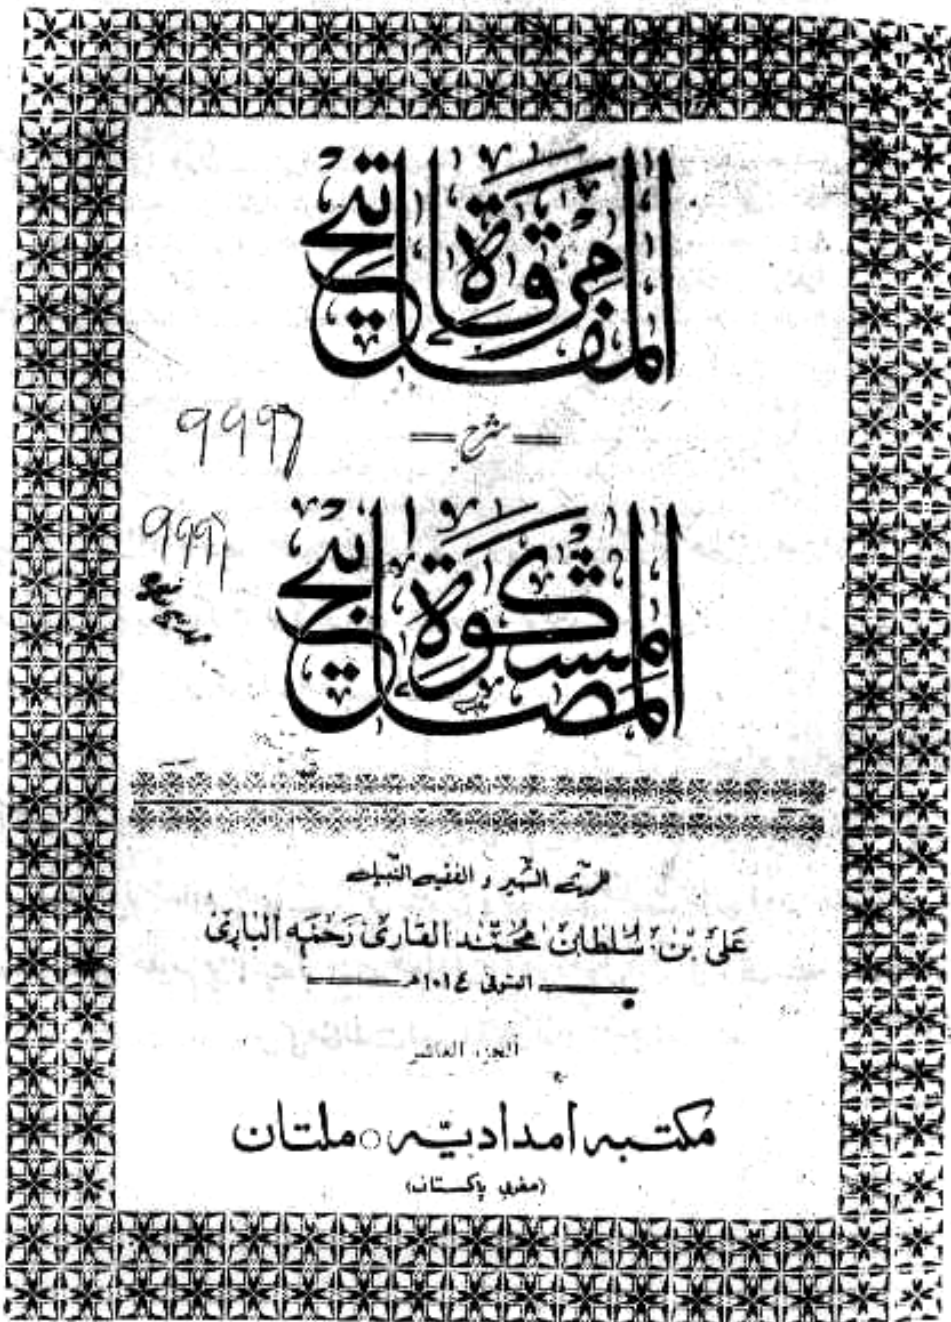 مرقاة
المفاتيح
شرح
مشكوة
المصابيح
الشهير و الفقيه النبيل
على بن سلطان محمد القارى رحمه البارى
المتوفى ١٠١٤ هـ
الجزء العاشر
مكتبه امداديّه ○ ملتان
(مغربى پاكستان)
9997